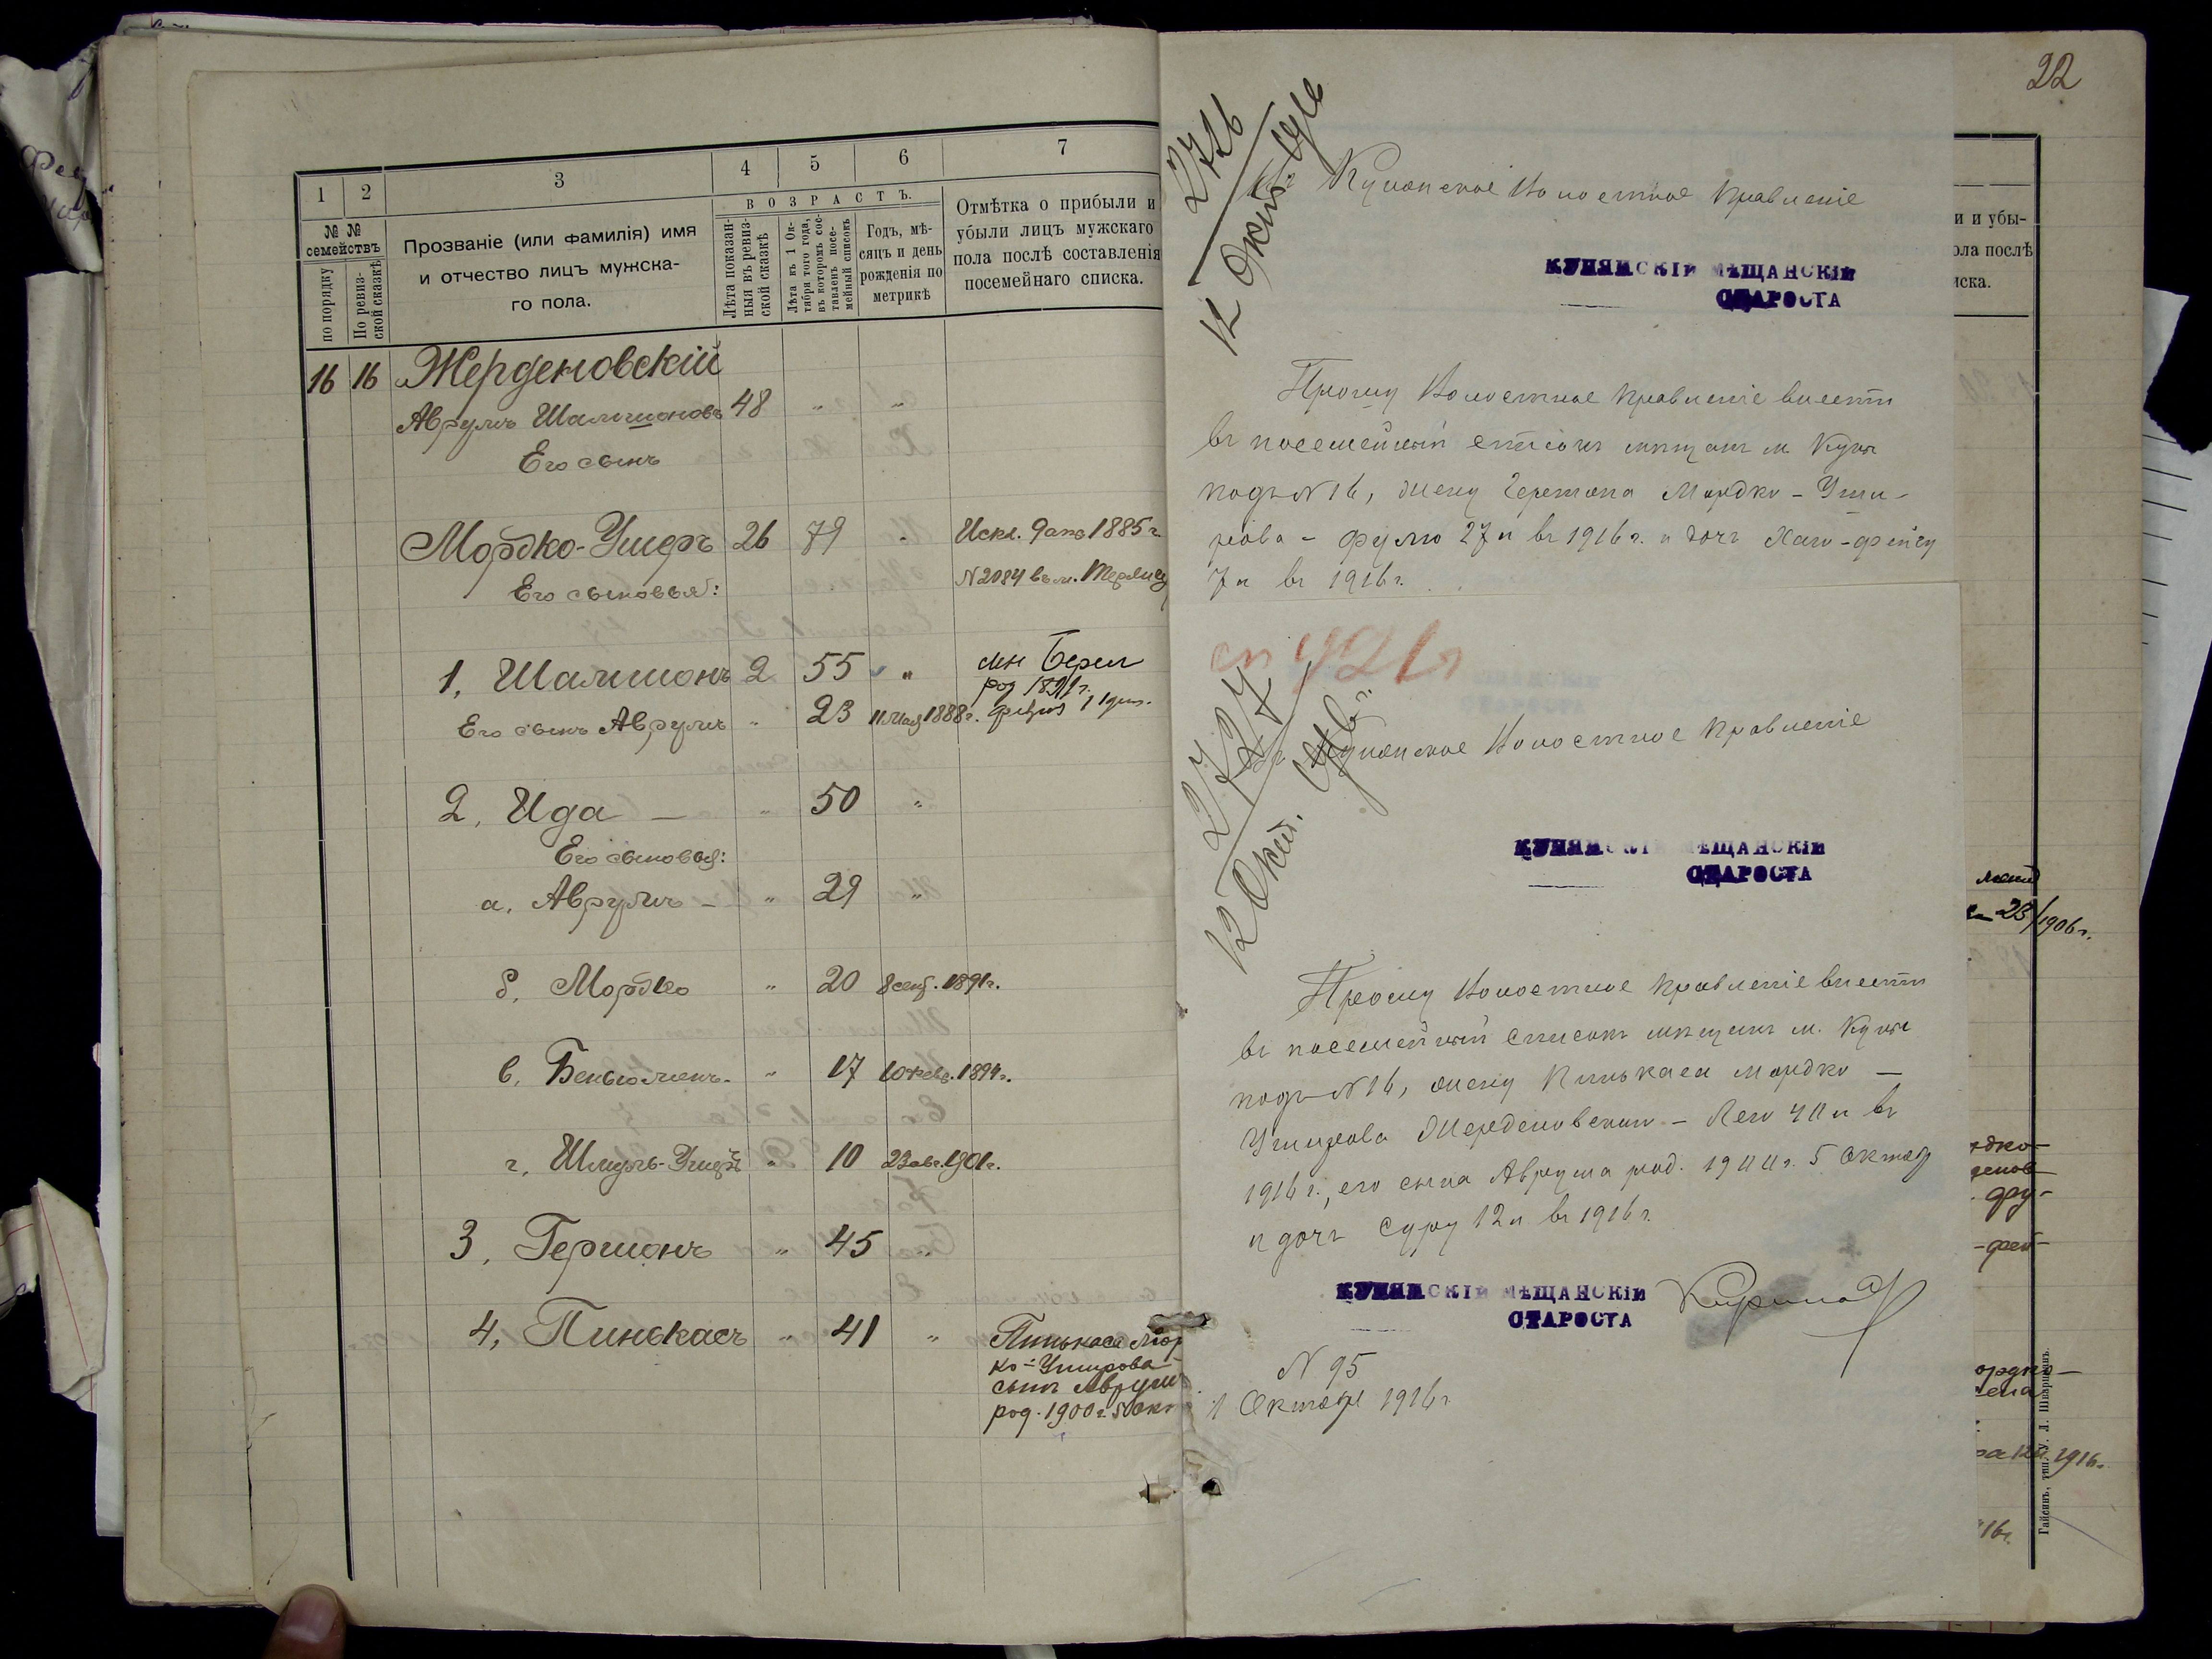 22
1 2 3 4 5 6 7
№ №
семействъ
по порядку
По ревиз-
ской сказкѣ
Прозваніе (или фамилія) имя
и отчество лицъ мужска-
го пола.
ВОЗРАСТЪ.
Лѣта показан-
ныя въ ревиз-
ской сказкѣ
Лѣта къ 1 Ок-
тября того года,
въ которомъ сос-
тавленъ посе-
мейный списокъ
Годъ, мѣ-
сяцъ и день
рожденія по
метрикѣ
Отмѣтка о прибыли и
убыли лицъ мужскаго
пола послѣ составленія
посемейнаго списка.
16 16 Жерденовскій
Аврумъ Шалмионовъ 48 " "
Его сынъ
Мордко-Ушеръ 26 79 " Искл. 1885 г.
Его сыновья: N 2084 въ м.
1, Шалмионъ 2 55 " сын Берел
род 1891 г.
Его сынъ Аврумъ " 23 11 Мая 1888 г.
2, Ида — " 50 "
Его сыновья:
а, Аврумъ — " 29 "
б, Мордко " 20 8 сент. 1891 г.
в, Беньюменъ- " 17 1894 г.
г, " 10 23 авг. 1901 г.
3, Гершонъ " 45 "
4, Пинькасъ " 41 " Пинькаса Мор
ко-Уширова
сынъ Аврум
род. 1900 г. 5 Окт
2716
12 Окт.
Въ Кунянское Волостное Правленіе
КУНЯНСКІЙ МѢЩАНСКІЙ
СТАРОСТА
Прошу Волостное Правленіе внести
въ посемейный списокъ мѣщанъ м. Куны
подъ N 16, жену Гершона Мордко-Уши-
рова - Фрума 27 л въ 1916 г. и дочь Хаю-Фейгу
7 л въ 1916 г.
2727
12 Окт.
Въ Кунянское Волостное Правленіе
КУНЯНСКІЙ МѢЩАНСКІЙ
СТАРОСТА
Прошу Волостное Правленіе внести
въ посемейный списокъ мѣщанъ м. Куны
подъ N 16, жену Пинькаса Мордко —
Уширова Жерденовскаго - Лею 40 л въ
1916 г., его сына Аврума род. 1900 г. 5 Октяб
и дочь Суру 12 л въ 1916 г.
КУНЯНСКІЙ МѢЩАНСКІЙ
СТАРОСТА
N 95
1 Октября 1916 г.
и и убы-
ола послѣ
иска.
23/1906 г.
рдко-
денов
-фей-
ордко-
жена
ра 12 л. 1916 г.
16 г.
Гайсинъ, тип. У. Л. Шварцманъ.